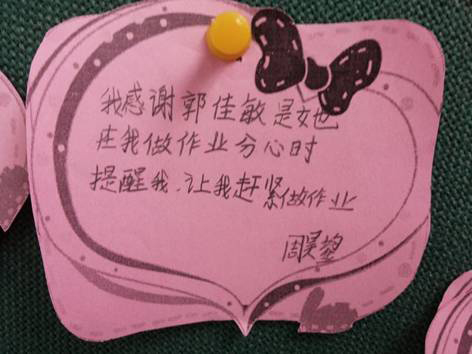 我感谢郭佳敏是她
在我做作业分心时
提醒我.让我赶紧做作业
周昊